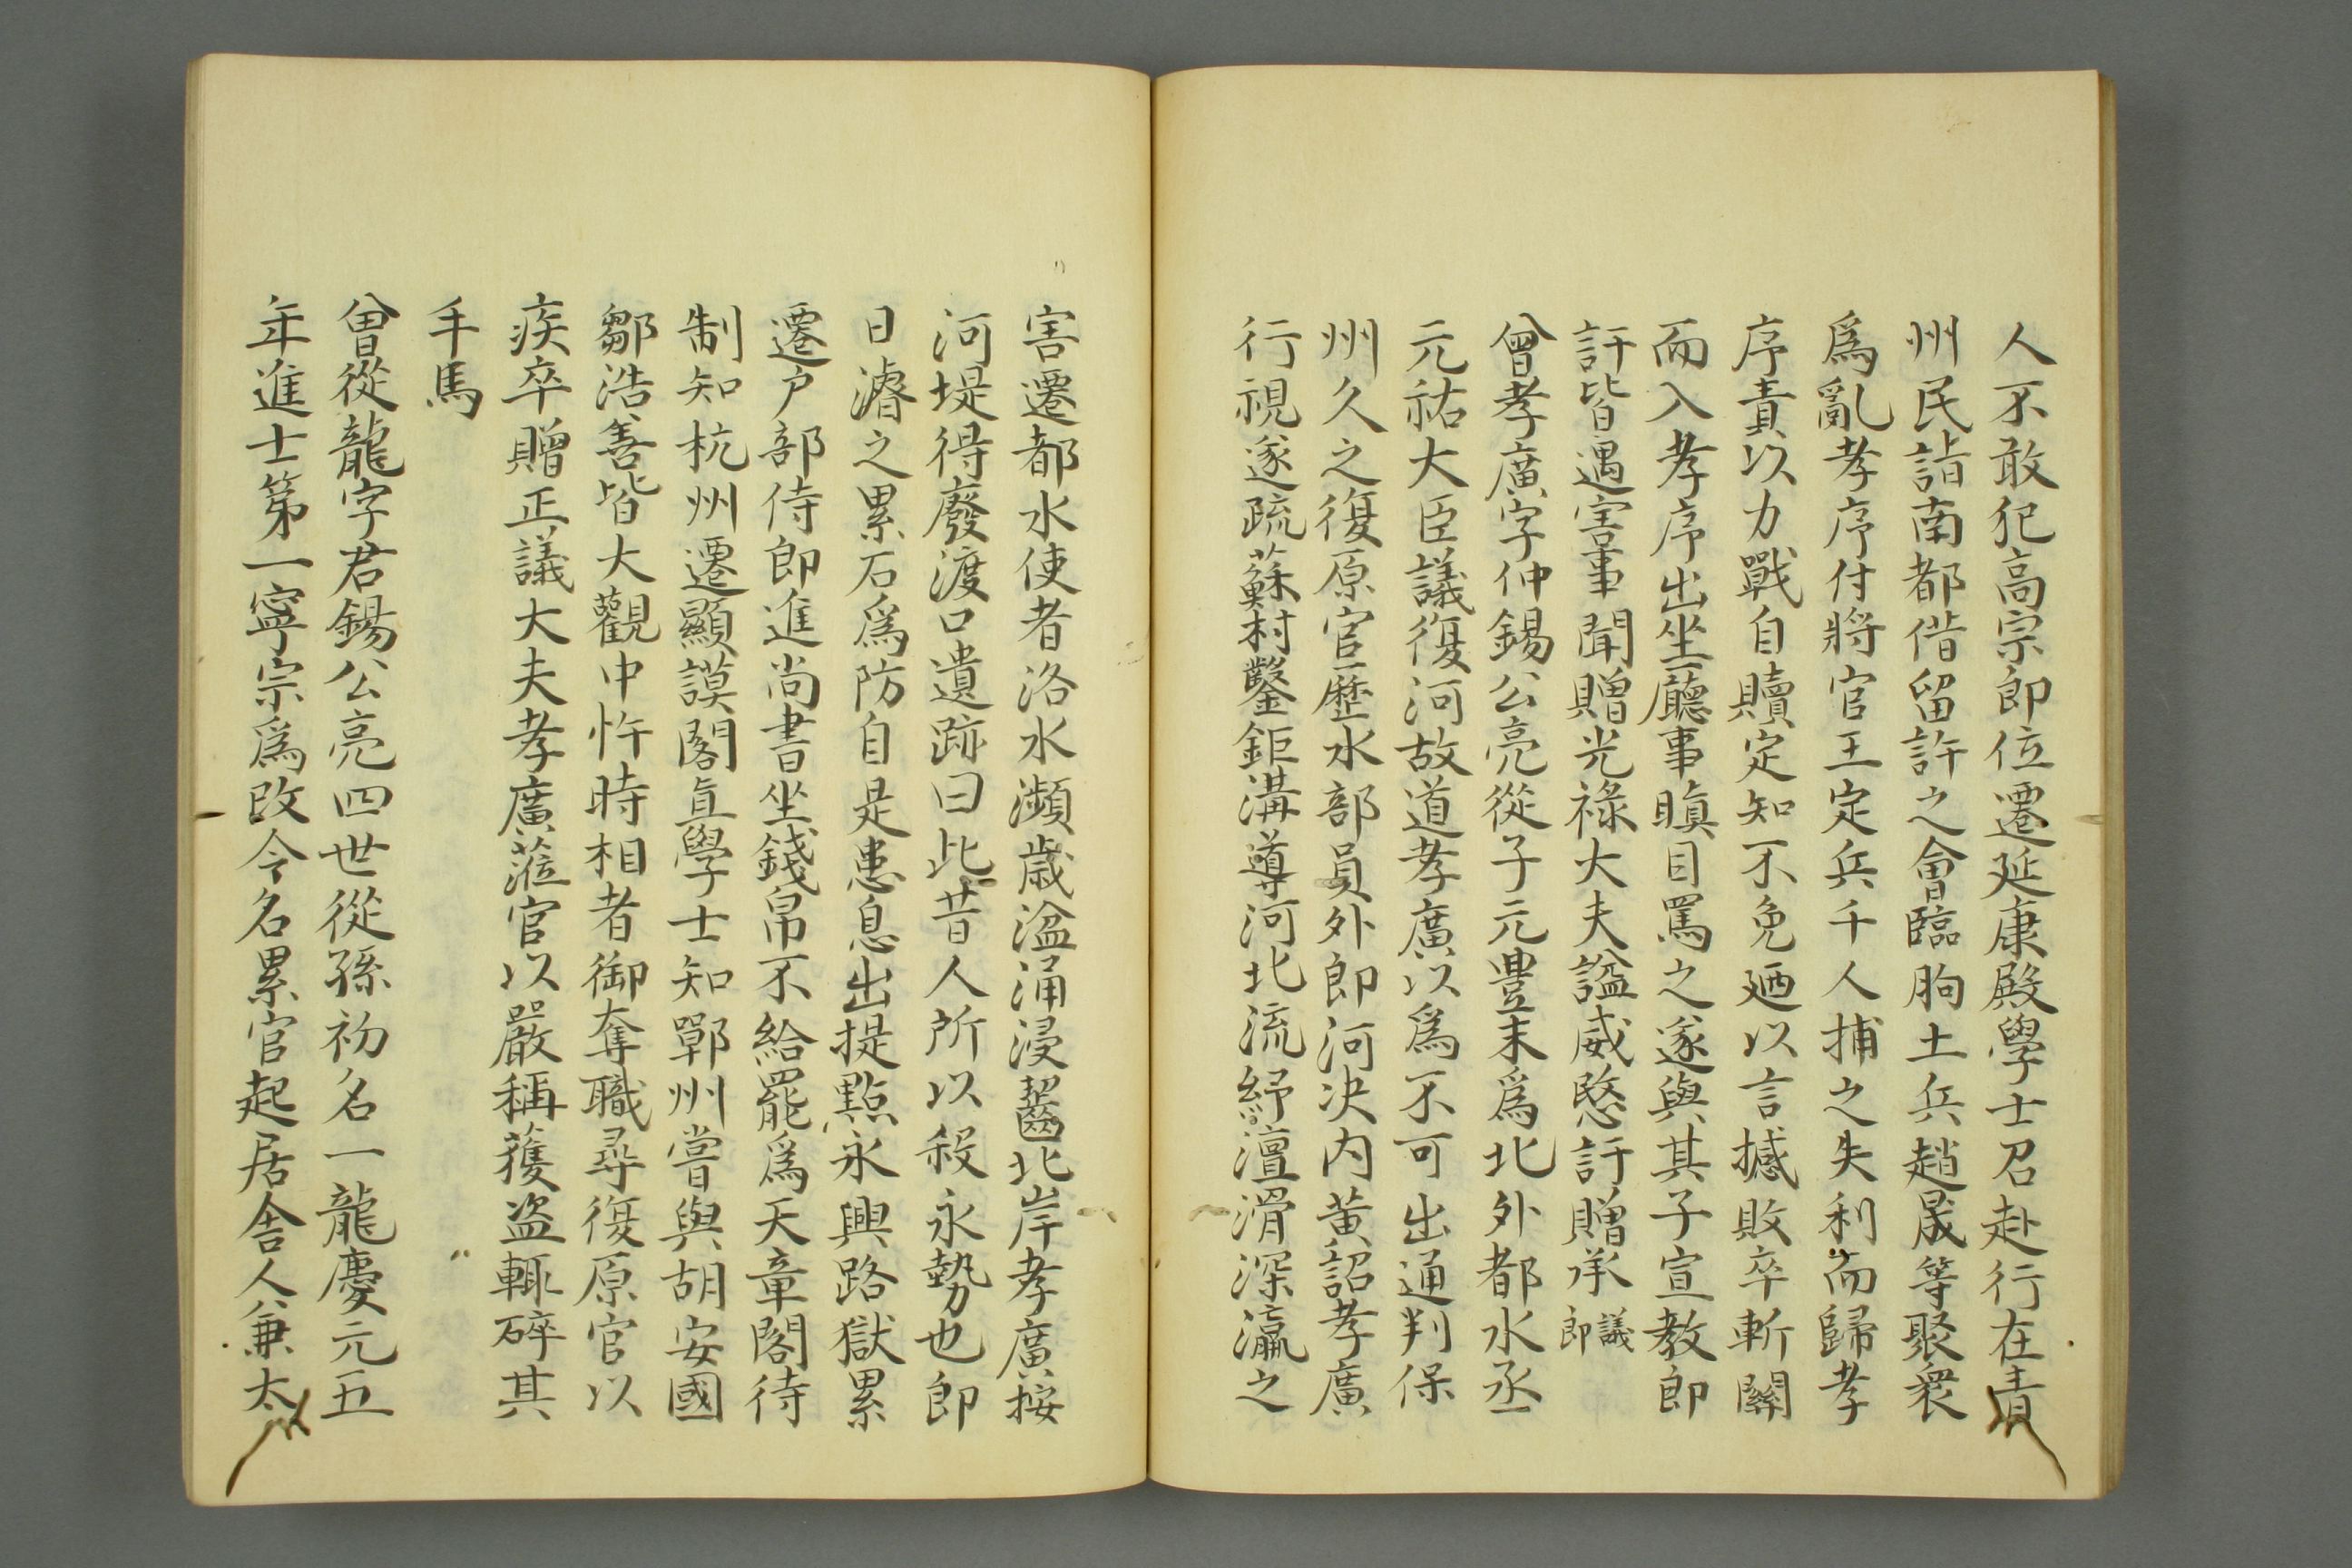 人不敢犯高宗即位遷延康殿學士召赴行在青
州民詣南都偕留許之會臨朐土兵趙晟等聚衆
爲亂孝序付將官王定兵千人捕之失利而歸孝
序責以力戰自贖定知不免廼以言撼敗卒斬關
而入孝序出坐廳事瞋目罵之遂與其子宣教郎
訏皆遇害事聞贈光祿大夫謚威愍訏贈承議郎
曾孝廣字仲錫公亮從子元豊末爲北外都水丞
元祐大臣議復河故道孝廣以爲不可出通判保
州久之復原官歷水部員外郎河决内黃詔孝廣
行視遂疏蘇村鑿鉅溝導河北流紓澶滑深瀛之
害遷都水使者洛水瀕歲湓涌浸齧北岸孝廣按
河堤得廢渡口遺跡曰此昔人所以殺水勢也即
日濬之累石爲防自是患息出提點永興路獄累
遷户部侍郎進尚書坐錢帛不給罷爲天章閣待
制知杭州遷顯謨閣直學士知鄆州嘗與胡安國
鄒浩善皆大觀中忤時相者御奪職尋復原官以
疾卒贈正議大夫孝廣蒞官以嚴稱獲盗輒碎其
手焉
曾從龍字君錫公亮四世從孫初名一龍慶元五
年進士第一寧宗爲改今名累官起居舍人兼太